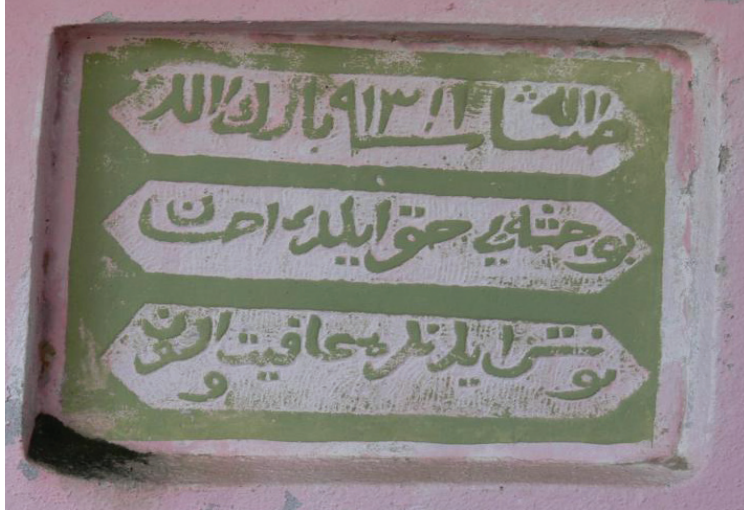 ماشاالله سنه ٩١٣١ بارك الله
بو چشمه يي حق ايلدى احسان
نوش ايدنلره عافيت اولسون